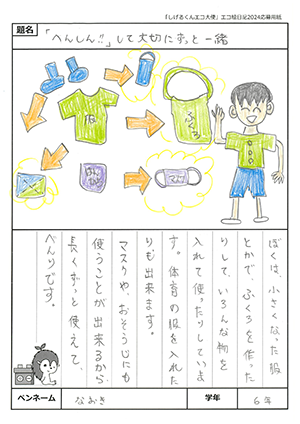 「しげるくんエコ大使」エコ絵日記2024応募用紙
題名
「へんしん!!」して大切にずっと一緒
服
ふくろ
ぼくは、小さくなった服
とかで ふくろを作った
りして、いろんな物を
入れて使ったりしていま
す。体育の服を入れた
りも出来ます。
マスクや、おそうじにも
使うことが出来るから
長くずっと使えて、
べんりです。
ペンネーム
なおき
学年
6年